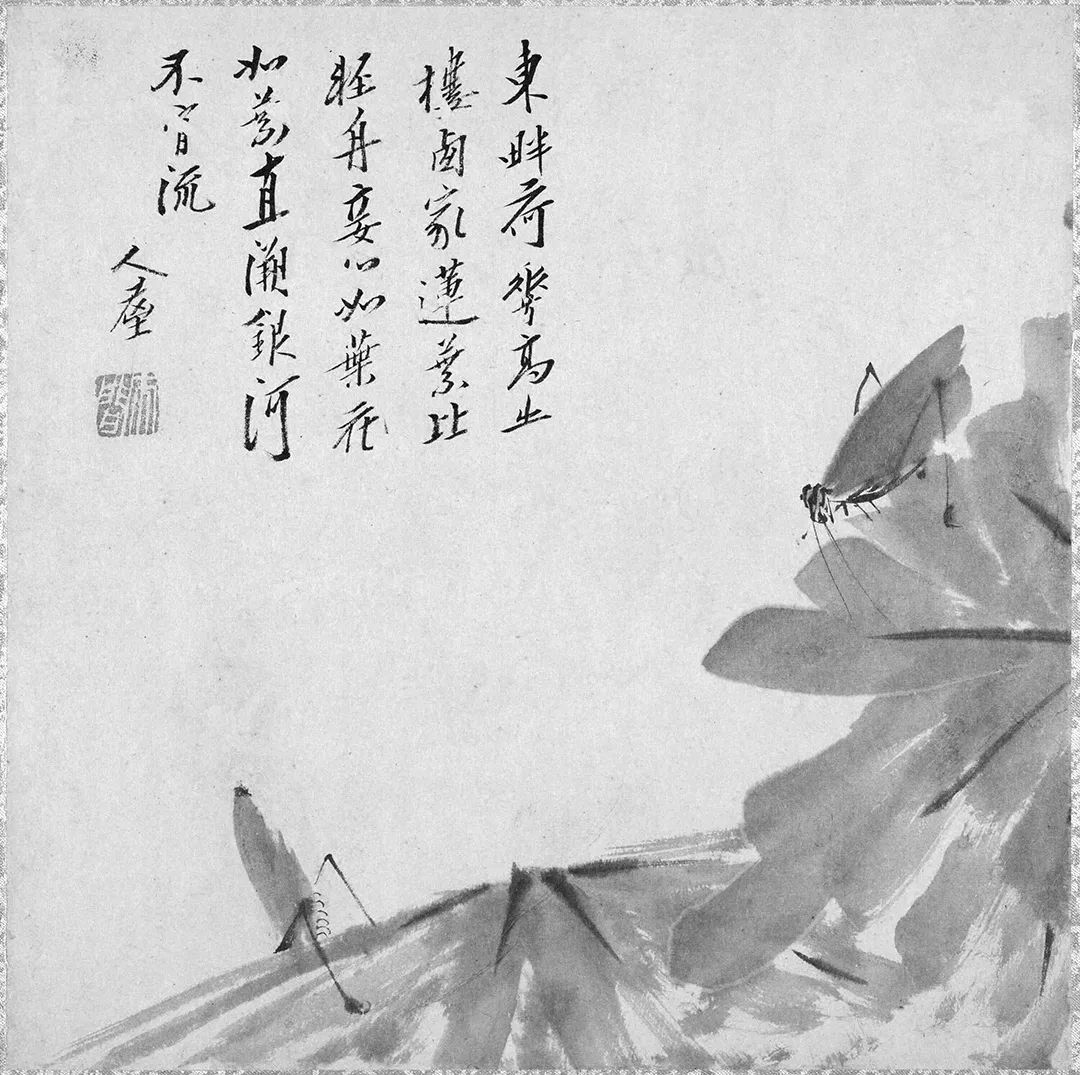 東畔荷華高出
樓卥家蓮葉比
輕舟妾心如葉花
如葉直溯銀河
不肯流
人屋